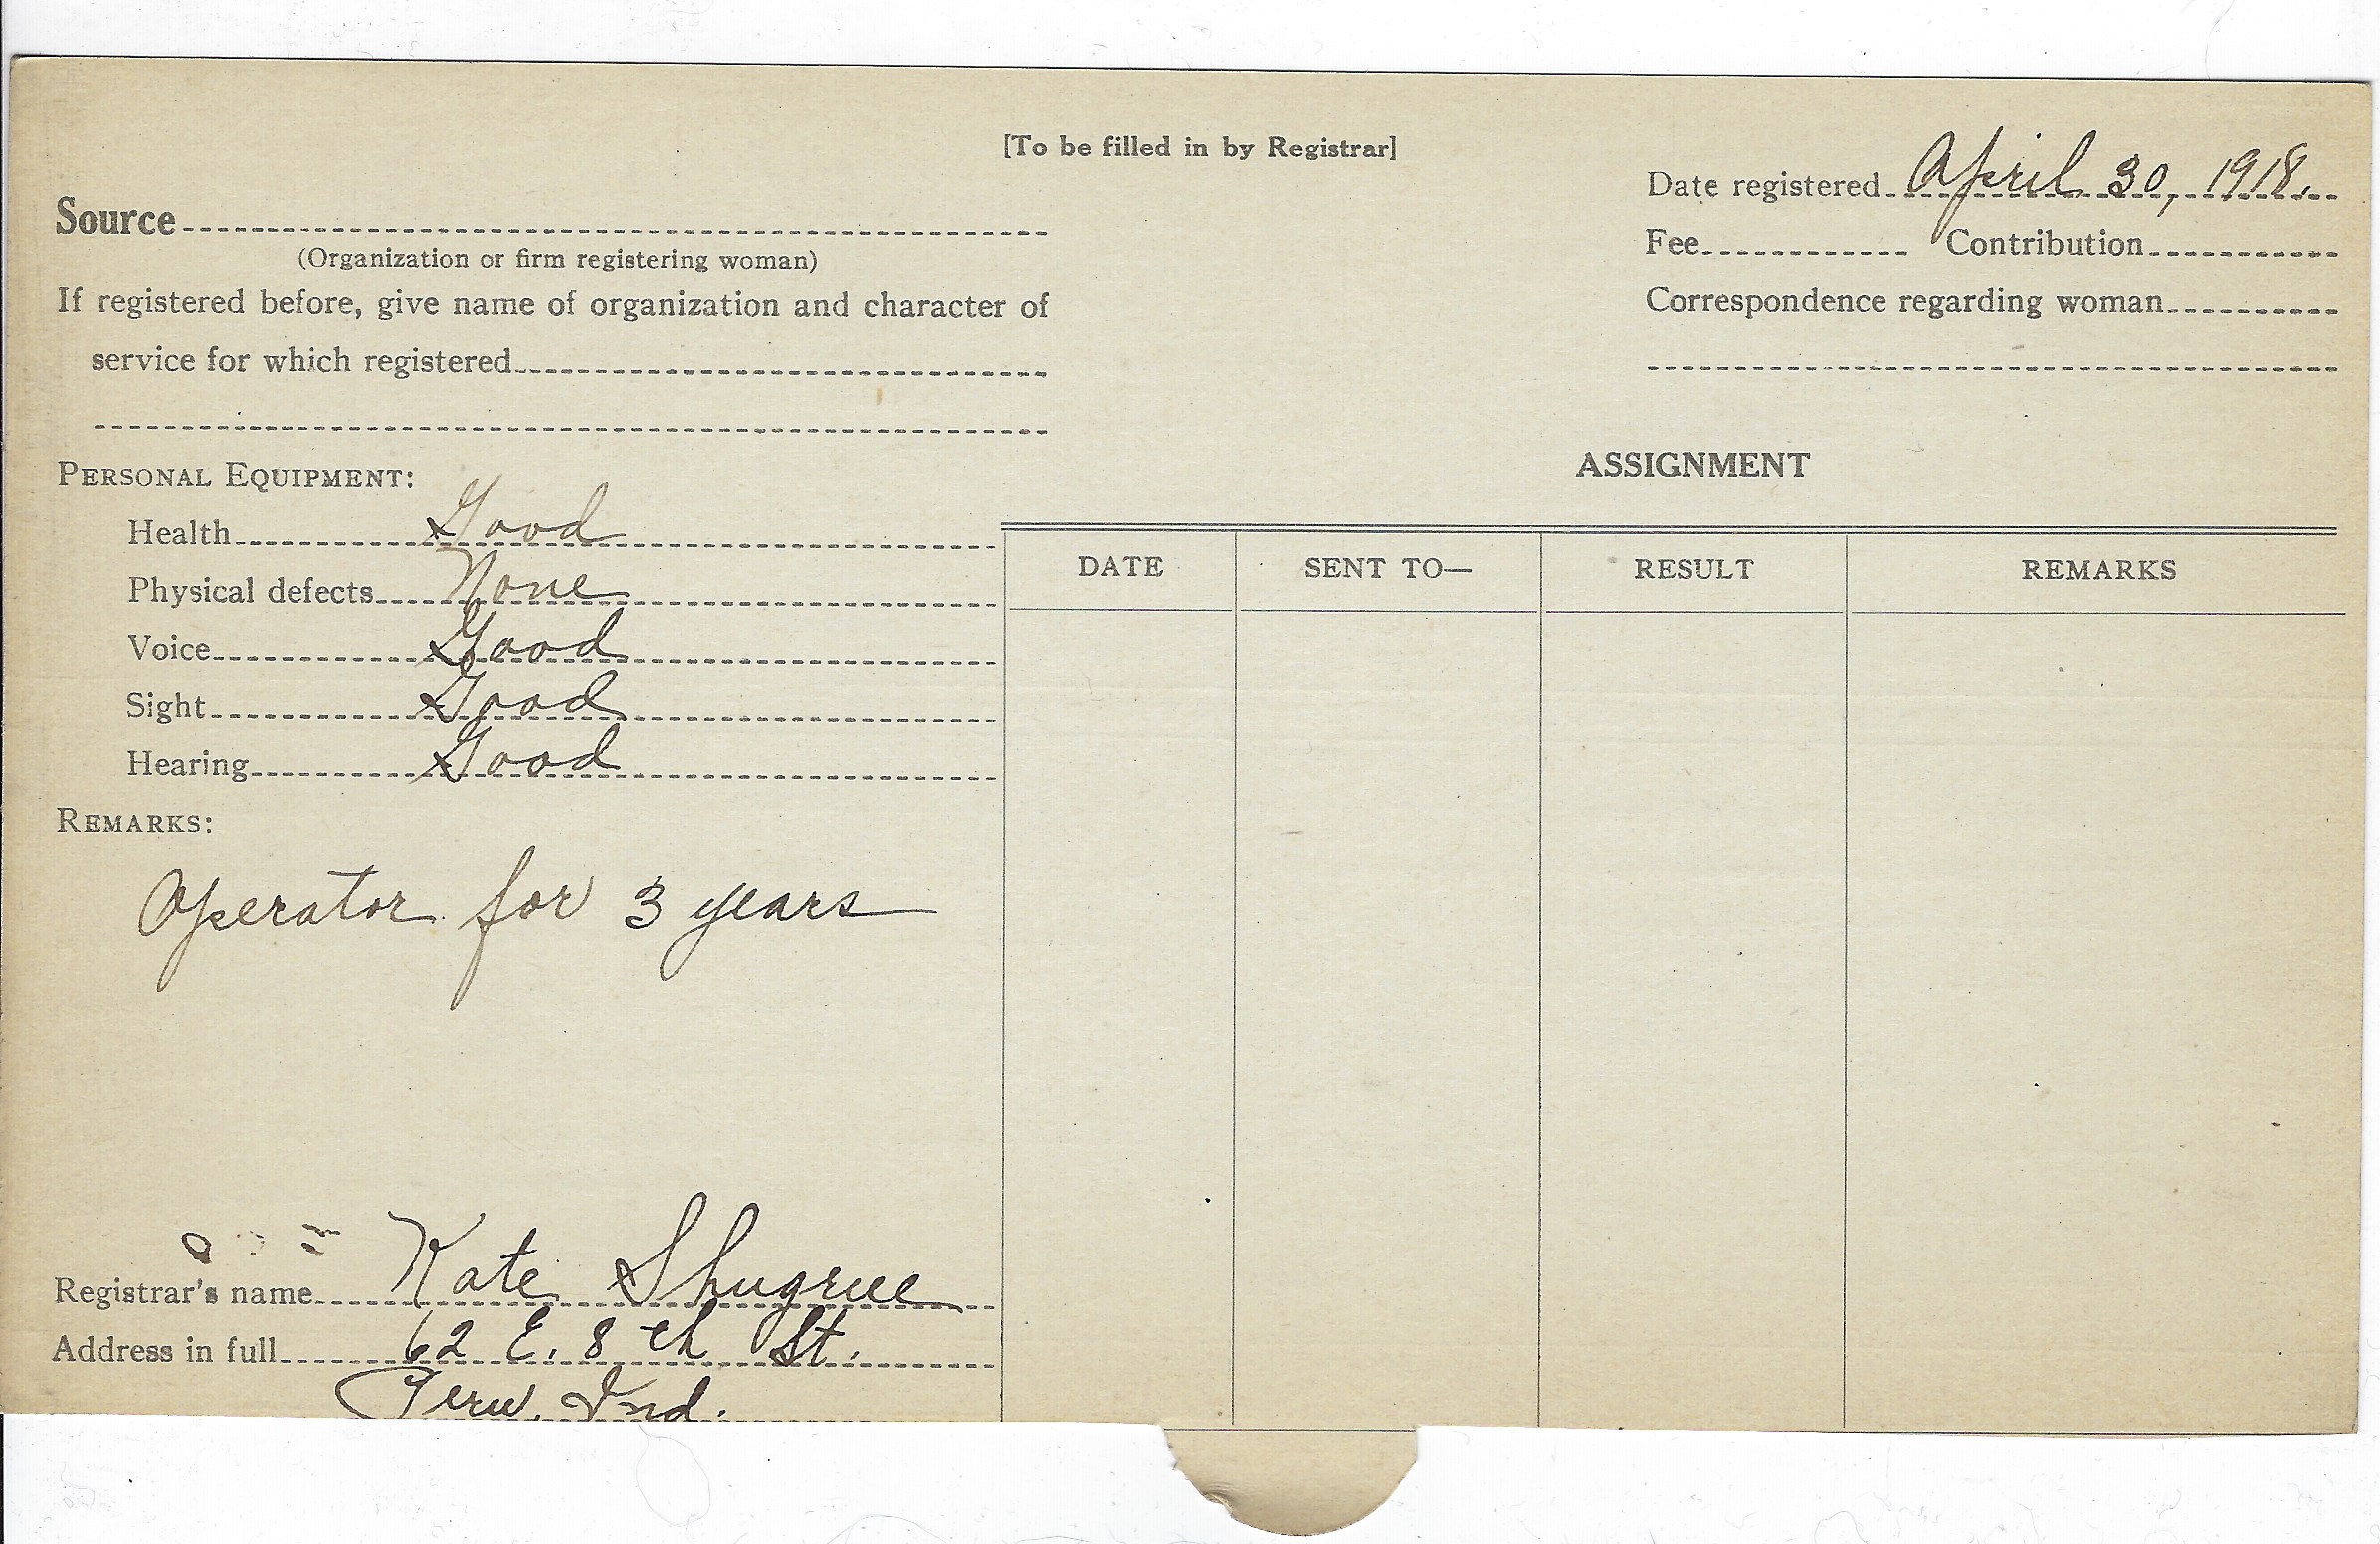 [To be filled in by Registrar]
Date registered April 30, 1918.
Source
(Organization or firm registering woman)
Fee Contribution
If registered before, give name of organization and character of
service for which registered
Correspondence regarding woman
PERSONAL EQUIPMENT:
Health Good
Physical defects None
Voice Good
Sight Good
Hearing Good
REMARKS:
Operator for 3 years
Registrar's name Kate Shugrue
Address in full 62 E. 8th St.
Peru, Ind.
ASSIGNMENT
DATE SENT TO— RESULT REMARKS